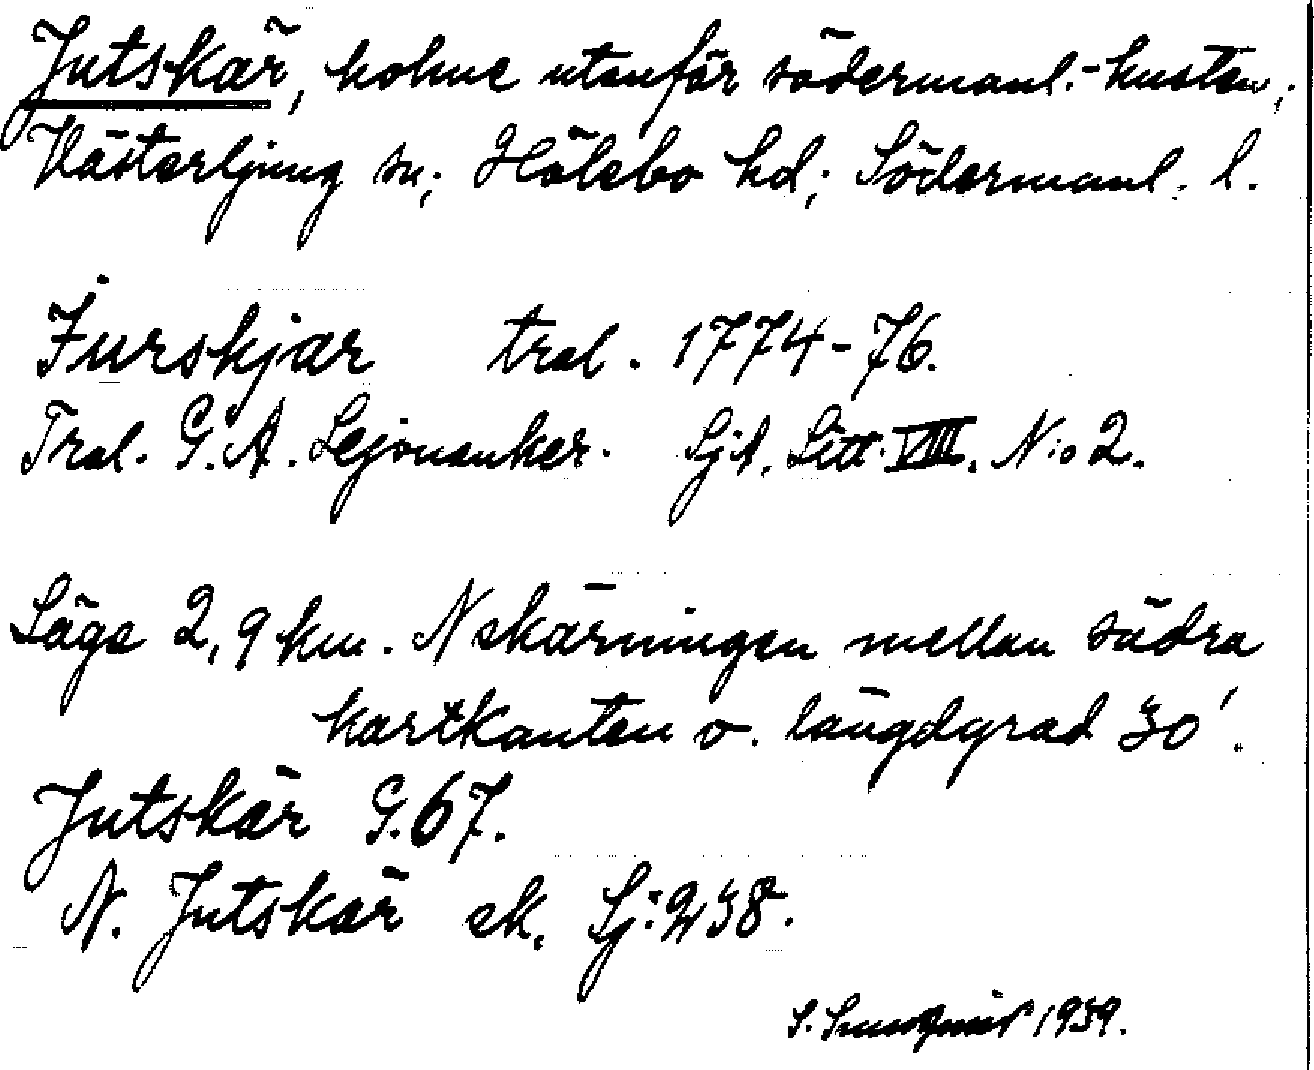 Jutskär, holme utanför södermanl.-kusten,
Västerljung sn; Hölebo hd; Södermanl. l.
Jurskjar tral. 1774-76.
Tral. G. A. Lejonanker. Sjk. Litt. VIII. N:o 2.
Läge 2,9 km. N skärningen mellan södra
kartkanten o. längdgrad 30'.
Jutskär G. 67.
N. Jutskär ek. Sj: 238.
S. 1939.